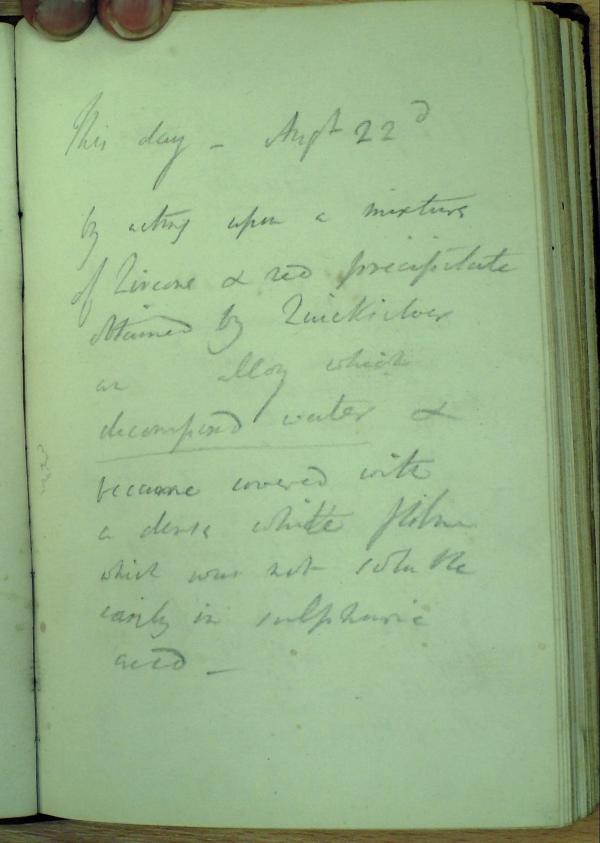 This day - Augt 22d
by acting upon a mixture
of Zircone & red precipitate
obtained by Quicksilver
an alloy which
decomposed water &
became covered with
a dense white film
which was not soluble
easily in sulphuric
acid -